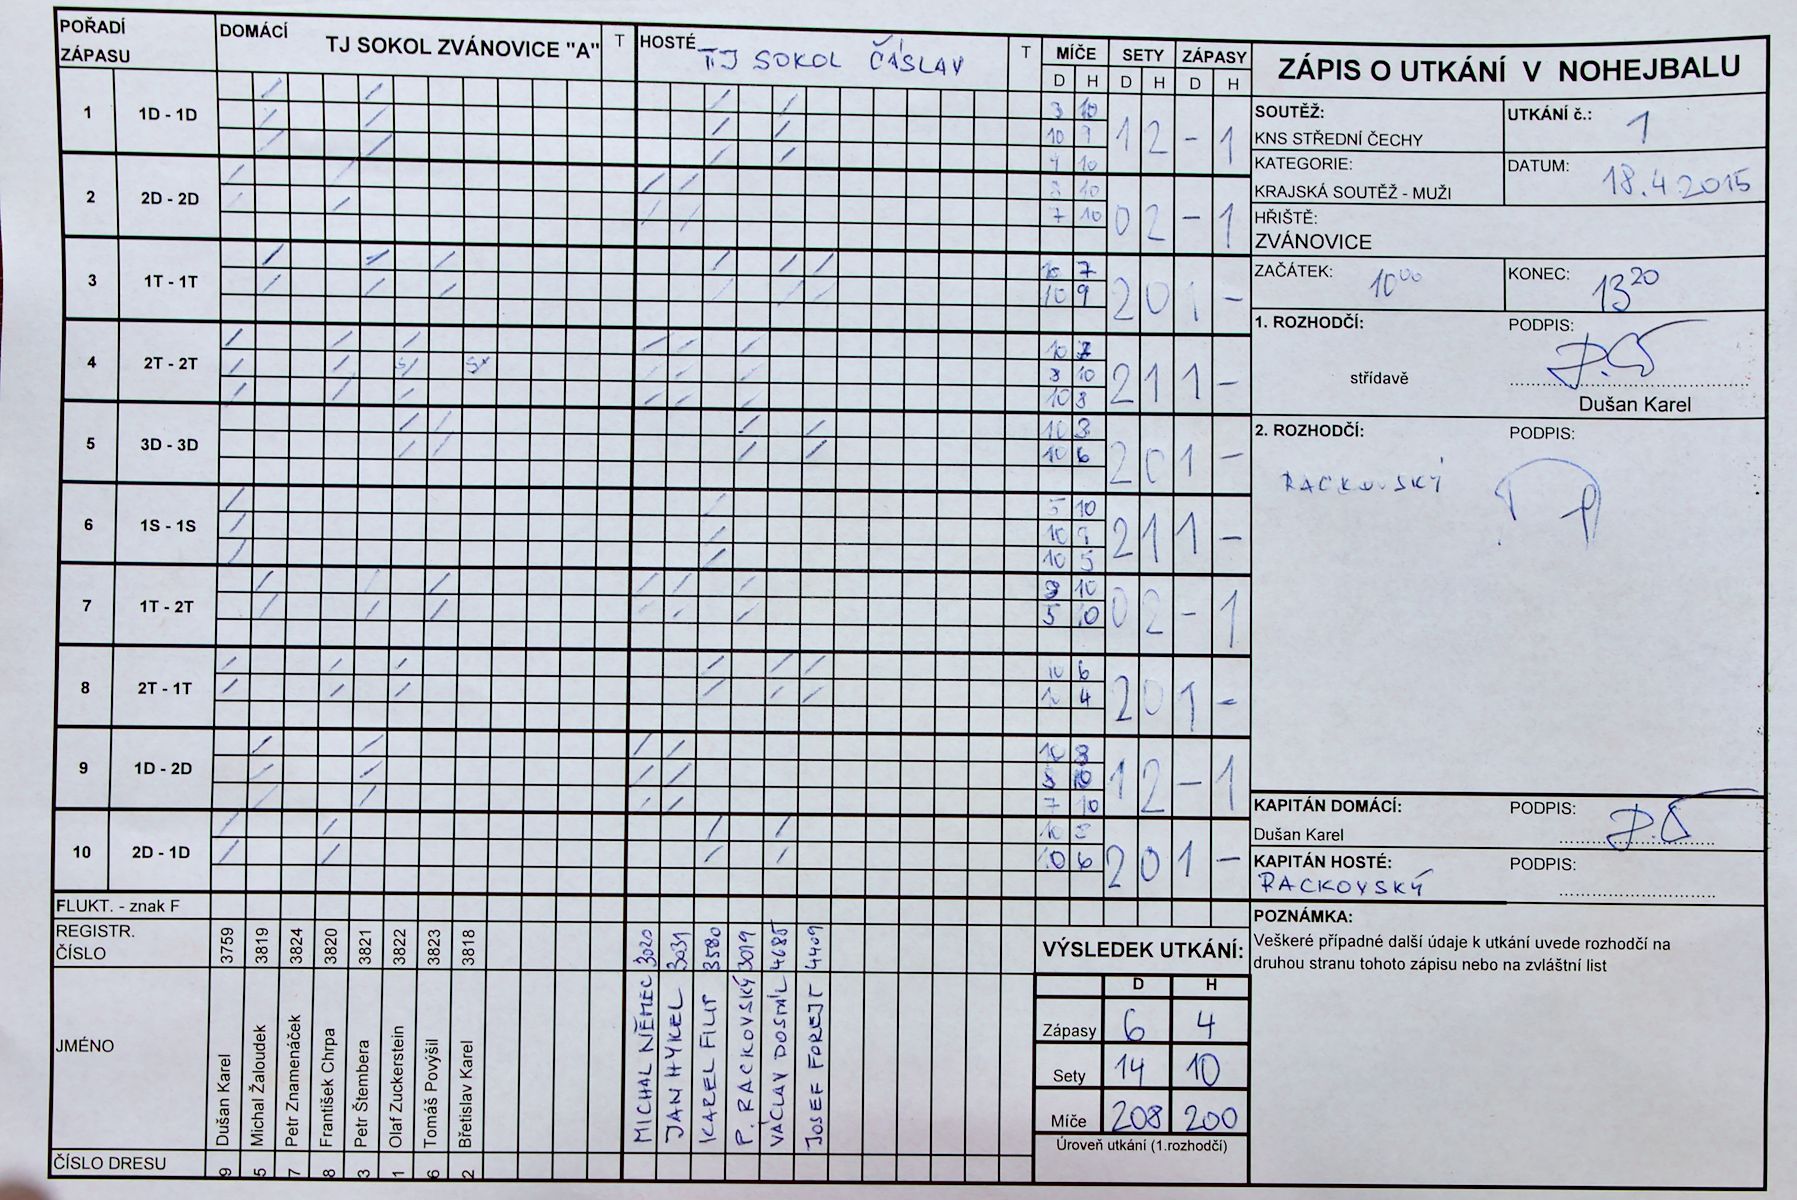 POŘADÍ ZÁPASU DOMÁCÍ TJ SOKOL ZVÁNOVICE "A" T HOSTÉ TJ SOKOL ČÁSLAV T MÍČE SETY ZÁPASY
D H D H D H
1 1D - 1D 1 2 - 1
10
10
10
2 2D - 2D 0 2 - 1
10
7 10
3 1T - 1T 2 0 1 -
10 7
10 9
4 2T - 2T 2 1 1 -
10 7
8 10
10 8
5 3D - 3D 2 0 1 -
10 3
10 6
6 1S - 1S 2 1 1 -
5 10
10 9
10 5
7 1T - 2T 0 2 - 1
8 10
5 10
8 2T - 1T 2 0 1 -
10 6
10 4
9 1D - 2D 1 2 - 1
10 8
8 10
7 10
10 2D - 1D 2 0 1 -
10
10 6
FLUKT. - znak F
REGISTR. ČÍSLO 3759 3819 3824 3820 3821 3822 3823 3818 3020 3031 3580 3019 4685 4409
JMÉNO Dušan Karel Michal Žaloudek Petr Znamenáček František Chrpa Petr Štembera Olaf Zuckerstein Tomáš Povýšil Břetislav Karel MICHAL NĚMEC JAN HÝKEL KAREL FILIP P. RACKOVSKÝ VÁCLAV DOSMIL JOSEF FOREJT
ČÍSLO DRESU 9 5 7 8 3 1 6 2
VÝSLEDEK UTKÁNÍ:
D H
Zápasy 6 4
Sety 14 10
Míče 208 200
Úroveň utkání (1.rozhodčí)
ZÁPIS O UTKÁNÍ V NOHEJBALU
SOUTĚŽ: UTKÁNÍ č.: 1
KNS STŘEDNÍ ČECHY
KATEGORIE: DATUM: 18.4.2015
KRAJSKÁ SOUTĚŽ - MUŽI
HŘIŠTĚ:
ZVÁNOVICE
ZAČÁTEK: 10⁰⁰ KONEC: 13²⁰
1. ROZHODČÍ: PODPIS:
střídavě
Dušan Karel
2. ROZHODČÍ: PODPIS:
RACKOVSKÝ
KAPITÁN DOMÁCÍ: PODPIS:
Dušan Karel
KAPITÁN HOSTÉ: PODPIS:
RACKOVSKÝ
POZNÁMKA:
Veškeré případné další údaje k utkání uvede rozhodčí na
druhou stranu tohoto zápisu nebo na zvláštní list